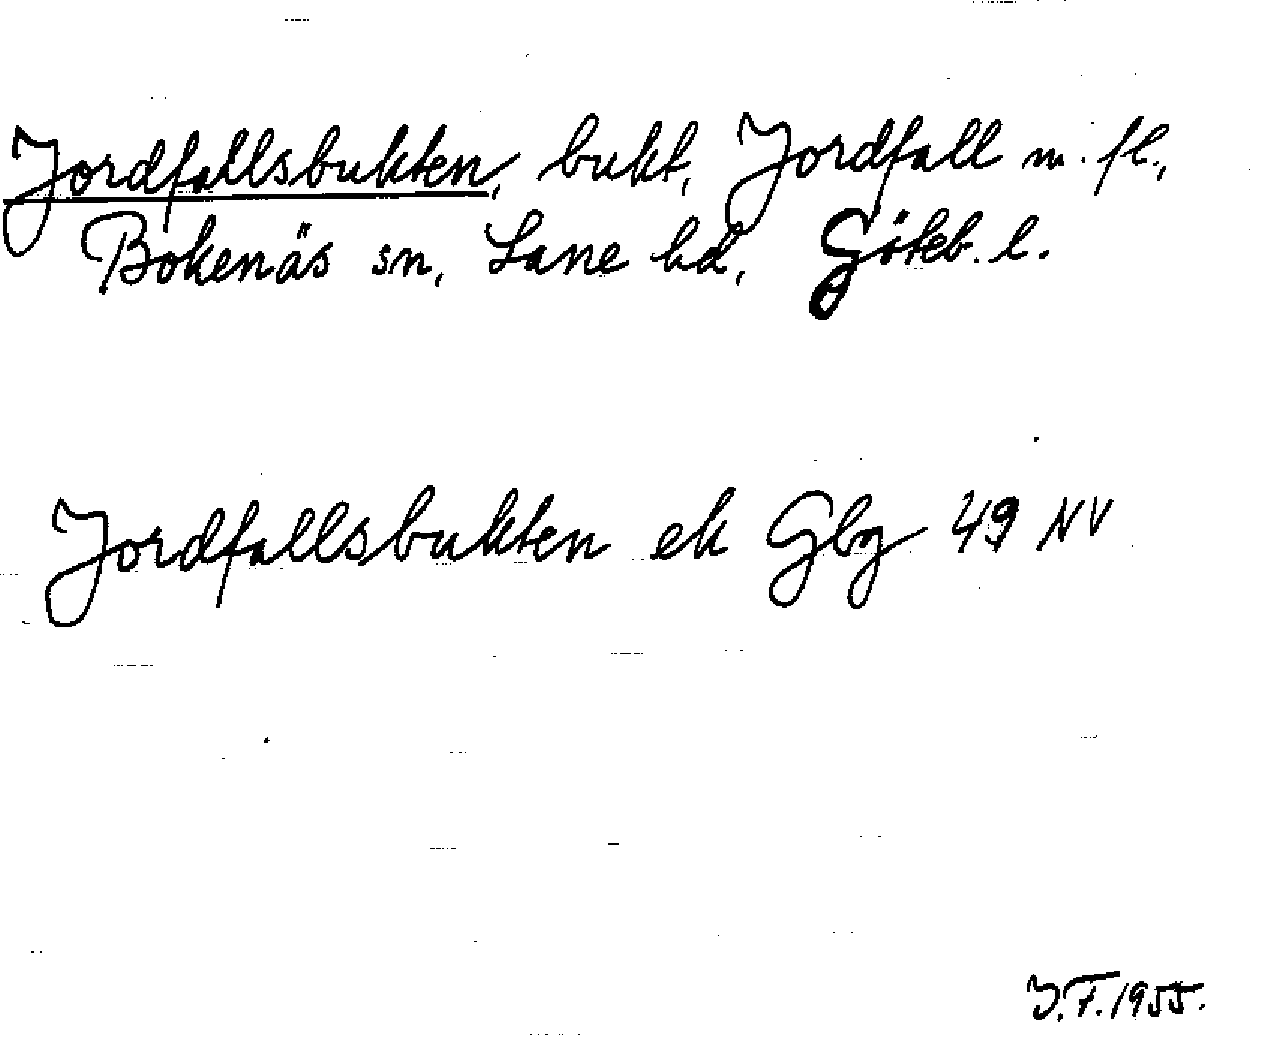 Jordfallsbukten, bukt, Jordfall m. fl.,
Bokenäs sn, Lane hd, Göteb. l.
Jordfallsbukten ek Gbg 49 NV
J.F. 1955.